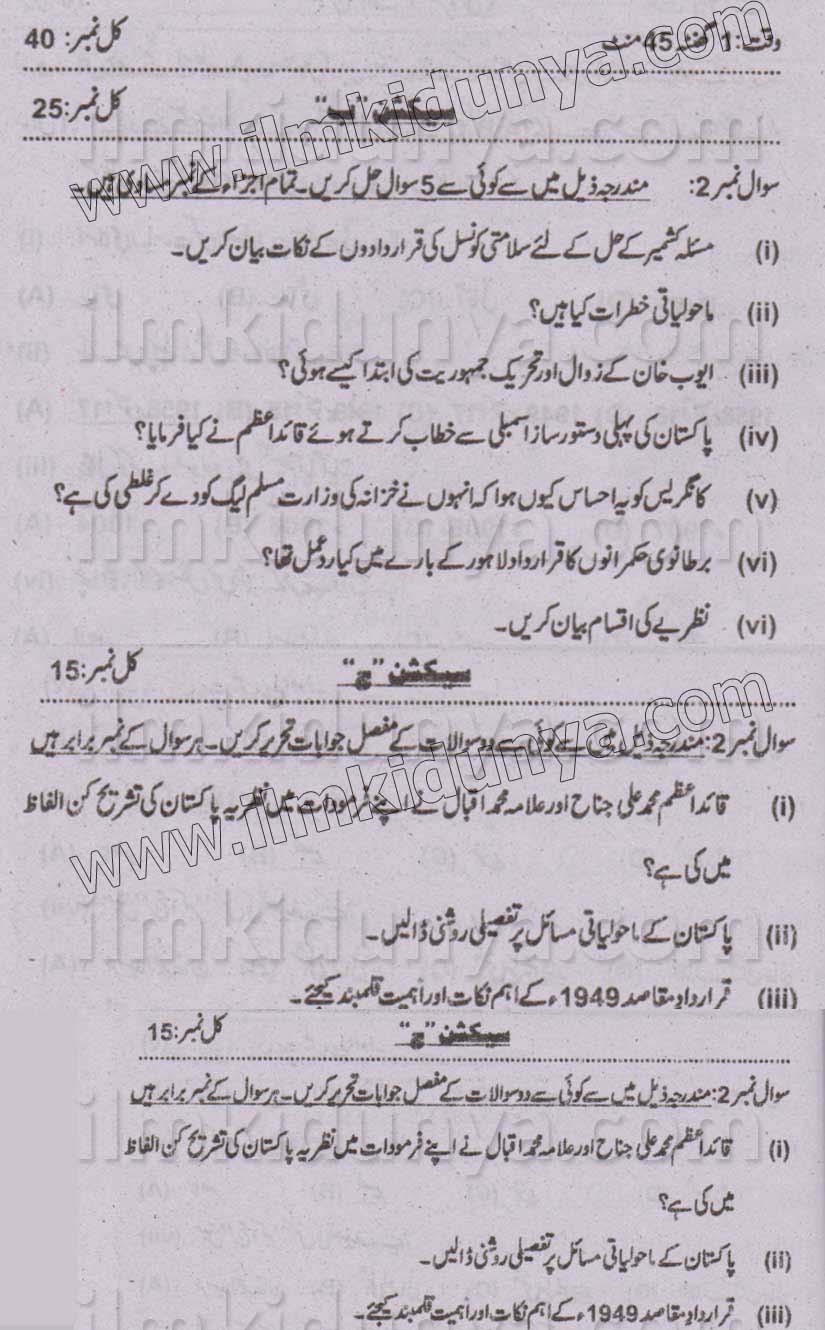 وقت: 1 گھنٹہ 45 منٹ کل نمبر: 40
سیکشن "ب" کل نمبر: 25
سوال نمبر 2: مندرجہ ذیل میں سے کوئی سے 5 سوال حل کریں۔ تمام اجزاء کے نمبر مساوی ہیں۔
(i) مسئلہ کشمیر کے حل کے لئے سلامتی کونسل کی قراردادوں کے نکات بیان کریں۔
(ii) ماحولیاتی خطرات کیا ہیں؟
(iii) ایوب خان کے زوال اور تحریک جمہوریت کی ابتدا کیسے ہوئی؟
(iv) پاکستان کی پہلی دستور ساز اسمبلی سے خطاب کرتے ہوئے قائداعظم نے کیا فرمایا؟
(v) کانگریس کو یہ احساس کیوں ہوا کہ انہوں نے خزانہ کی وزارت مسلم لیگ کو دے کر غلطی کی ہے؟
(vi) برطانوی حکمرانوں کا قرارداد لاہور کے بارے میں کیا ردعمل تھا؟
(vi) نظریے کی اقسام بیان کریں۔
سیکشن "ج" کل نمبر: 15
سوال نمبر 2: مندرجہ ذیل میں سے کوئی سے دو سوالات کے مفصل جوابات تحریر کریں۔ ہر سوال کے نمبر برابر ہیں
(i) قائداعظم محمد علی جناح اور علامہ محمد اقبال نے اپنے فرمودات میں نظریہ پاکستان کی تشریح کن الفاظ
میں کی ہے؟
(ii) پاکستان کے ماحولیاتی مسائل پر تفصیلی روشنی ڈالیں۔
(iii) قرارداد مقاصد 1949ء کے اہم نکات اور اہمیت قلمبند کیجئے۔
سیکشن "ج" کل نمبر: 15
سوال نمبر 2: مندرجہ ذیل میں سے کوئی سے دو سوالات کے مفصل جوابات تحریر کریں۔ ہر سوال کے نمبر برابر ہیں
(i) قائداعظم محمد علی جناح اور علامہ محمد اقبال نے اپنے فرمودات میں نظریہ پاکستان کی تشریح کن الفاظ
میں کی ہے؟
(ii) پاکستان کے ماحولیاتی مسائل پر تفصیلی روشنی ڈالیں۔
(iii) قرارداد مقاصد 1949ء کے اہم نکات اور اہمیت قلمبند کیجئے۔
www.ilmkidunya.com
www.ilmkidunya.com
ilmkidunya.com
ilmkidunya.com
ilmkidunya.com
ilmkidunya.com
ilmkidunya.com
ilmkidunya.com
ilmkidunya.com